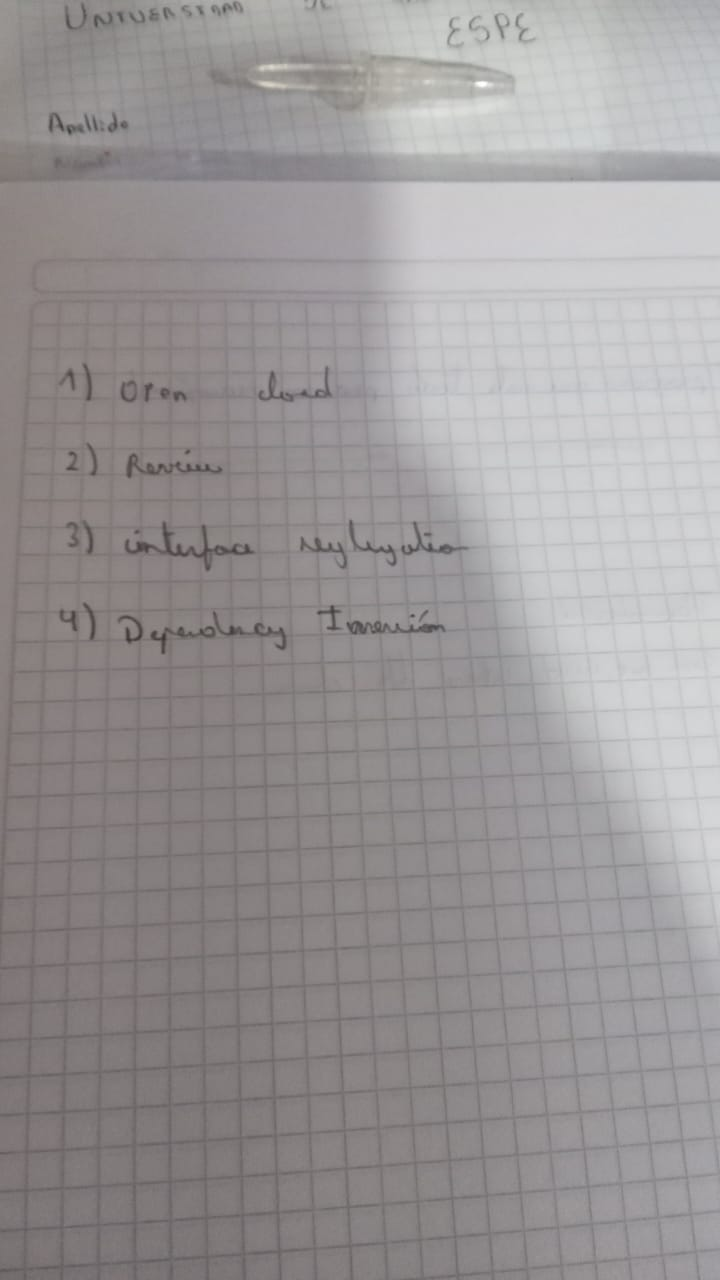 UNIVERSIDAD DE
ESPE
Apellido
1) Open closed
2)
3) interface segregation
4) Dependency Inversión